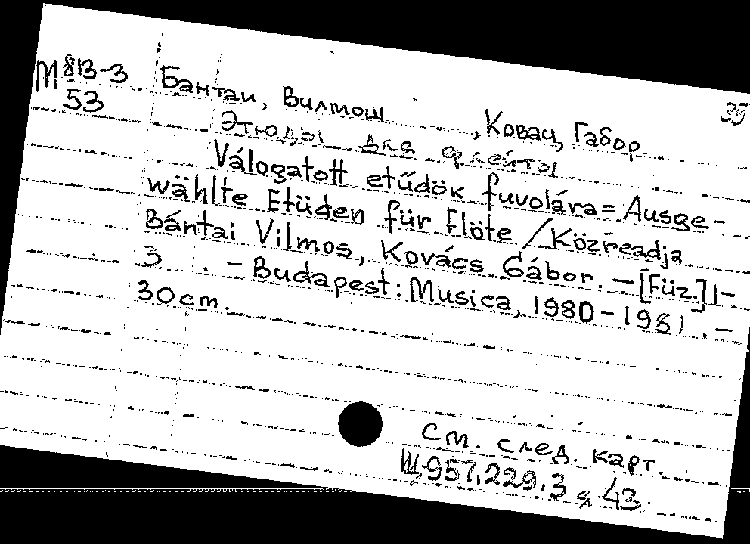 39
М 8В-3
53
Бантаи, Вилмош , Ковач, Габор
Этюды для флейты
Válogatott etűdök fuvolára = Ausge-
wählte Etüden für Flöte / Közreadja
Bántai Vilmos, Kovács Gábor. – [Füz.] 1-
3 . – Budapest: Musica, 1980-1981. –
30 cm.
См. след. карт.
Щ957.229.3 я 43